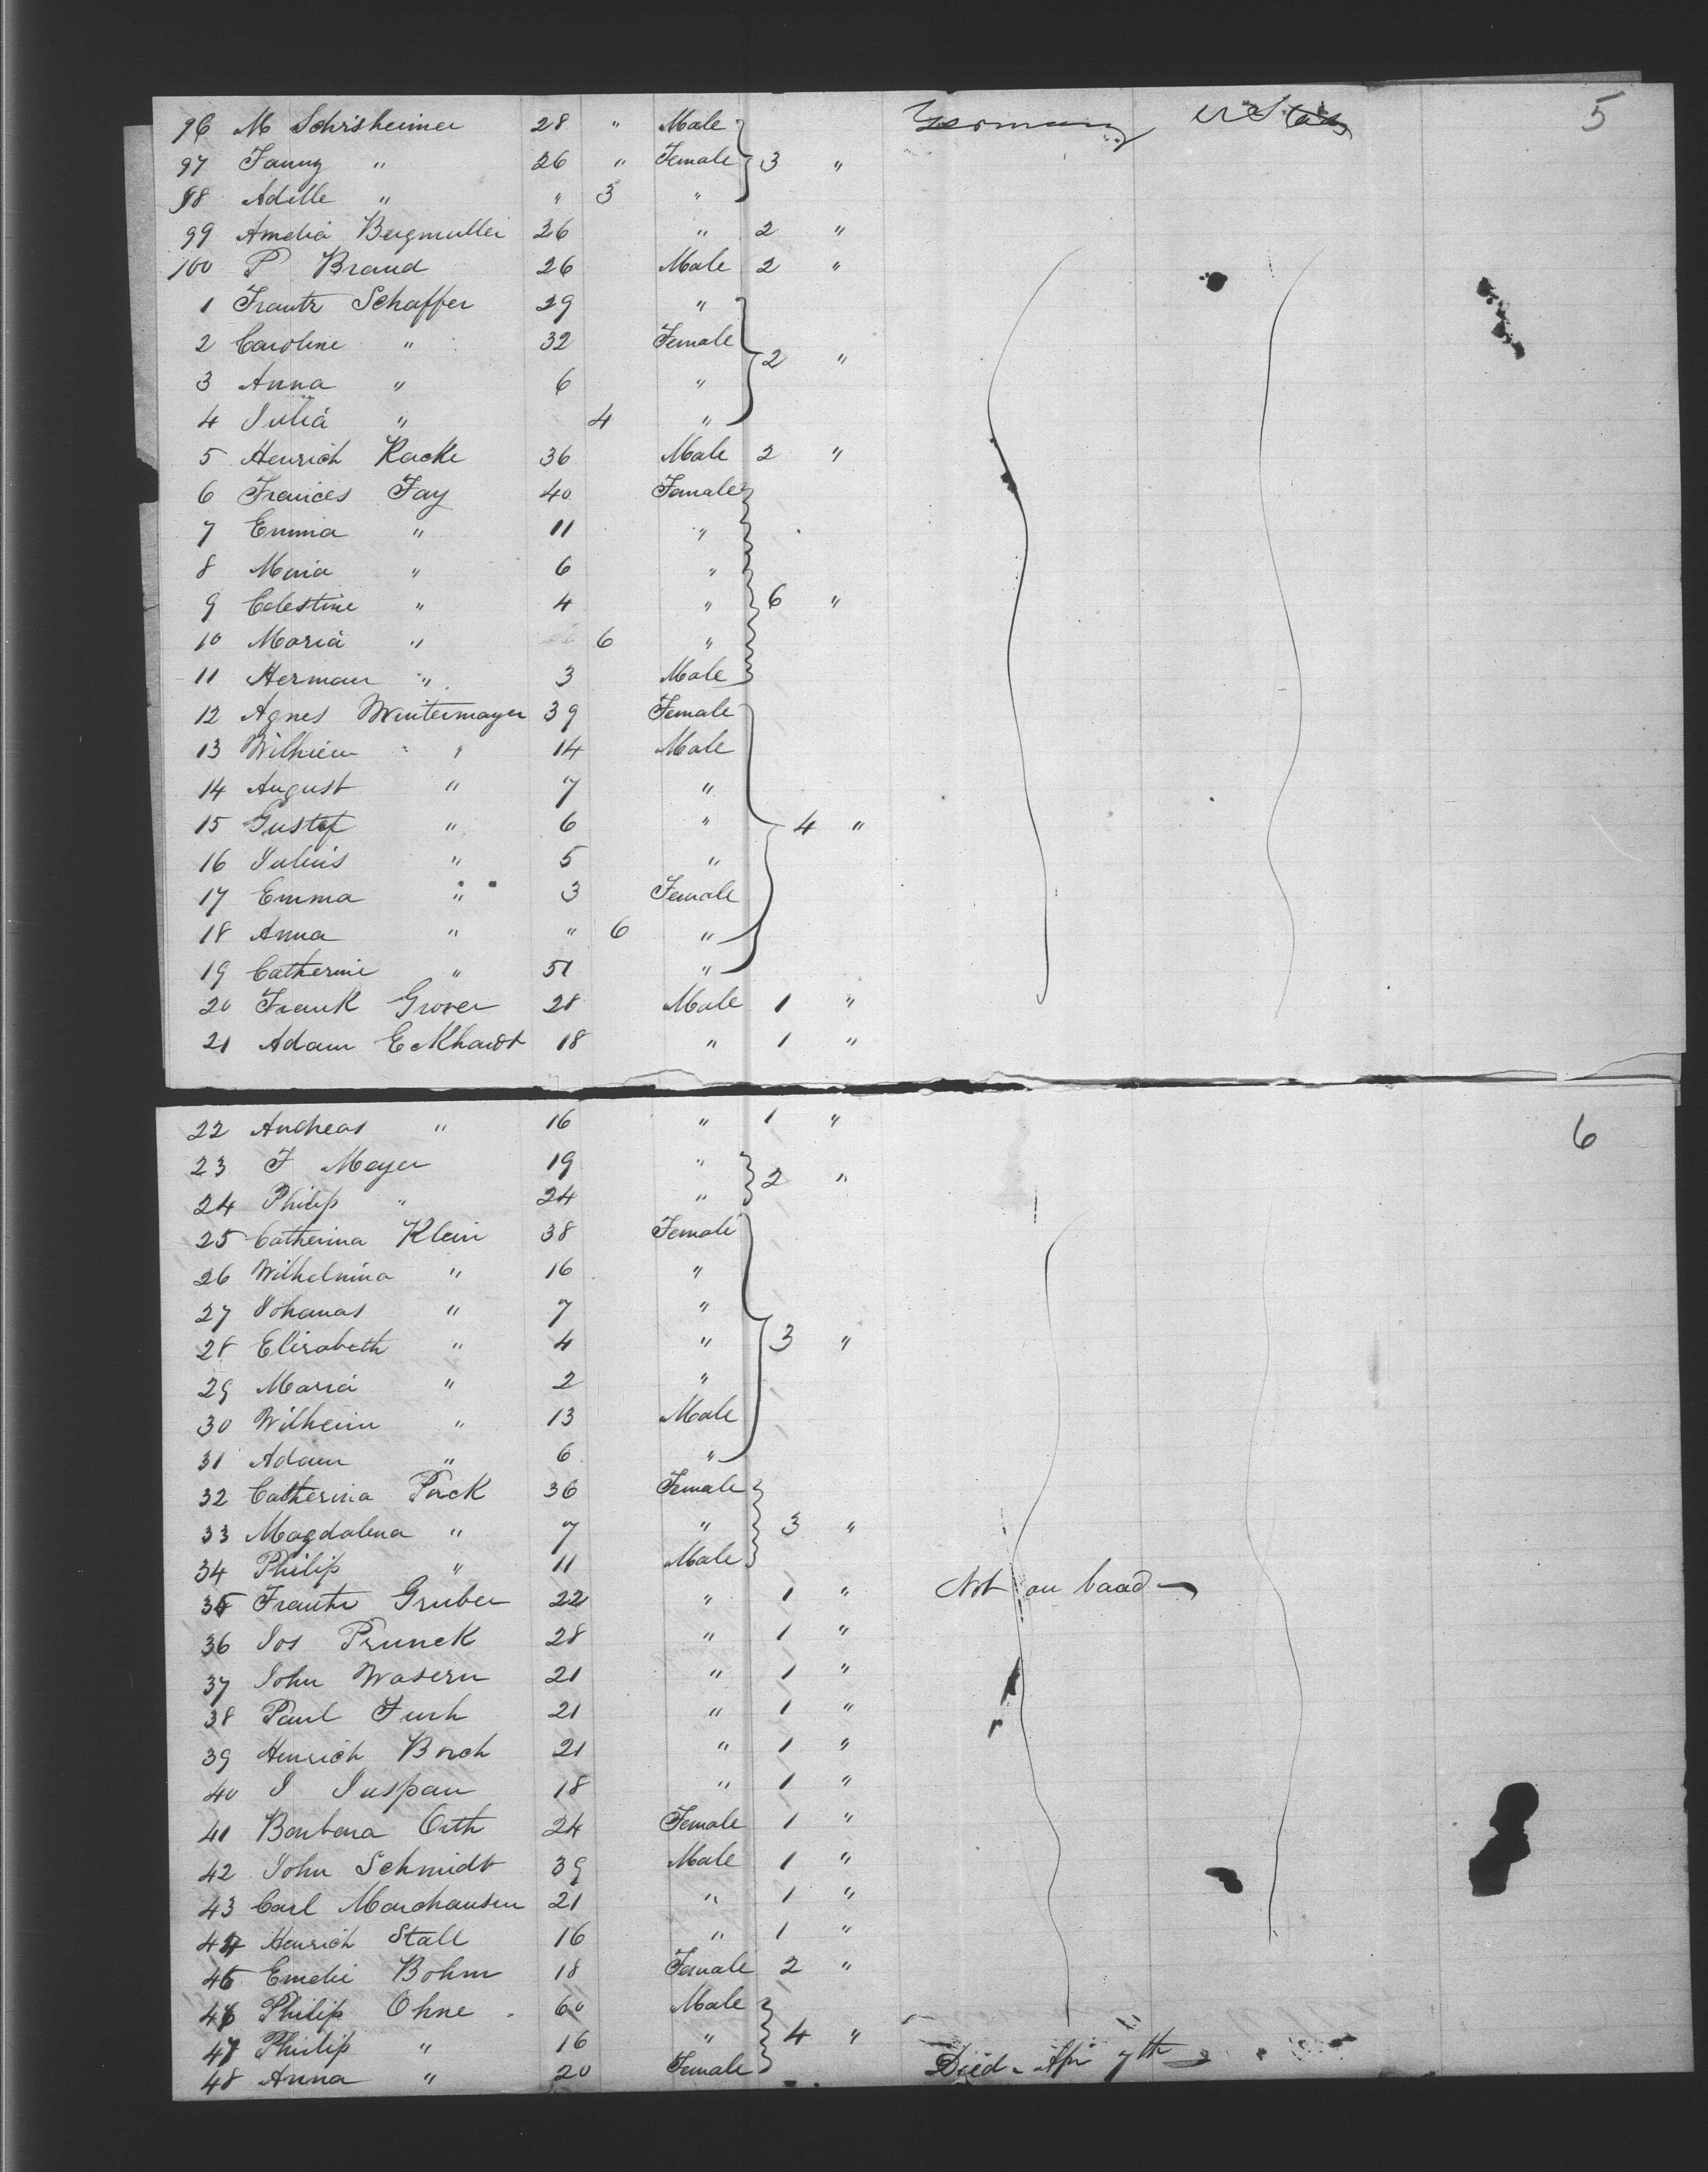 96 M Schrisheimer 28 " Male Germany U States 5
97 Fanny " 26 " Female 3 "
98 Adelle " " 3 "
99 Amelia Bergmuller 26 " 2 "
100 P Brand 26 Male 2 "
1 Frantz Schaffer 29 "
2 Caroline " 32 Female 2 "
3 Anna " 6 "
4 Julia " 4 "
5 Henrich Racke 36 Male 2 "
6 Frances Fay 40 Female
7 Emma " 11 "
8 Maria " 6 "
9 Celestine " 4 " 6 "
10 Maria " 6 "
11 Herman " 3 Male
12 Agnes Wintermayer 39 Female
13 Wilhiem " 14 Male
14 August " 7 "
15 Gustaf " 6 " 4 "
16 Julius " 5 "
17 Emma " 3 Female
18 Anna " " 6 "
19 Catherine " 51 "
20 Frank Grover 28 Male 1 "
21 Adam Eckhardt 18 " 1 "
22 Andreas " 16 " 1 " 6
23 F Meyer 19 " 2 "
24 Philip " 24 "
25 Catherina Klein 38 Female
26 Wilhelmina " 16 "
27 Johanas " 7 "
28 Elisabeth " 4 " 3 "
29 Maria " 2 "
30 Wilheim " 13 Male
31 Adam " 6 "
32 Catherina Pack 36 Female
33 Magdalena " 7 " 3 "
34 Philip " 11 Male
35 Frantz Gruber 22 " 1 " Not on baad
36 Jos Prunek 28 " 1 "
37 John Wasern 21 " 1 "
38 Paul 21 " 1 "
39 Henrich 21 " 1 "
40 J Juspan 18 " 1 "
41 Barbara Orth 24 Female 1 "
42 John Schmidt 39 Male 1 "
43 Carl Marchausen 21 " 1 "
44 Henrich Stall 16 " 1 "
45 Emelie Bohm 18 Female 2 "
46 Philip Ohne 60 Male
47 Philip " 16 " 4 "
48 Anna " 20 Female Died Apr 7th